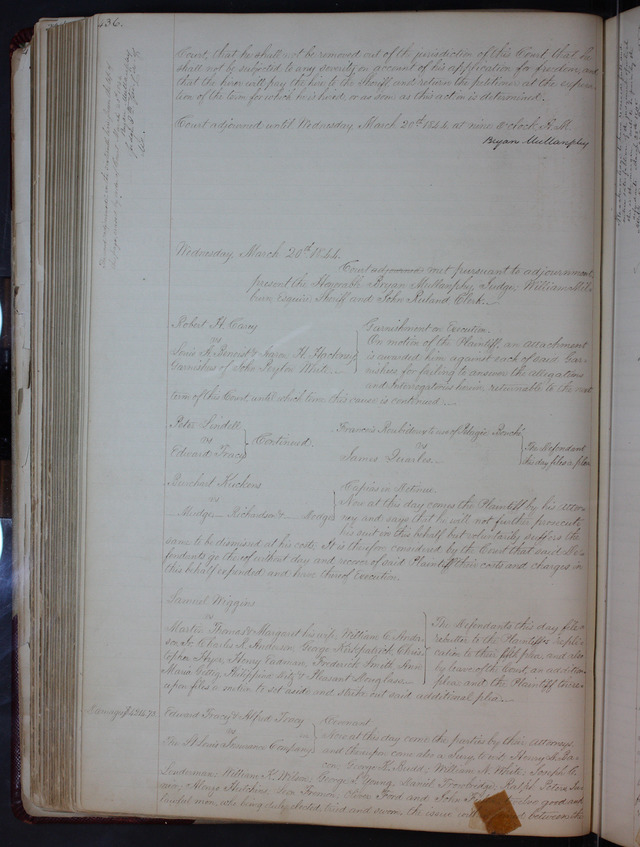 436.
Court, that he shall not be removed out of the jurisdiction of this Court, that he
shall not be subjected to any severity on account of his application for freedom, and
that the hirer will pay the hire to the Sheriff and return the petitioner at the expira-
tion of the term for which he is hired, or as soon as this action is determined.
Court adjourned until Wednesday March 20th 1844 at nine o'clock A.M.
Bryan Mullanphy
Wednesday March 20th 1844
Court adjourned met pursuant to adjournment,
present the Honorable Bryan Mullanphy Judge, William Mil-
burn, Esquire Sheriff and John Ruland Clerk.
Robert H. Carey
vs
Louis A. Benoist & H. Hackney
Garnishees of John White
Garnishment on Execution.
On motion of the Plaintiff, an attachment
is awarded him against each of said Gar-
nishees for failing to answer the allegations
and Interrogatories herein, returnable to the next
term of this Court until which time this cause is continued.
Peter Lindell
vs
Edward Tracy
Continued.
Francis Roubideux to use of
vs
James Quarles
The Defendant
this day files a plea
vs
Mudge Richardson & Mudge
Now at this day comes the Plaintiff by his attor-
ney and says that he will not further prosecute
his suit in this behalf but voluntarily suffers the
same to be dismissed at his costs. It is therefore considered by the Court that said De-
fendants go thereof without day and recover of said Plaintiff their costs and charges in
this behalf expended and have thereof execution.
Samuel Wiggins
vs
Martin Thomas & Margaret his wife, William C. Ander-
son, Charles L. Anderson, George Kirkpatrick, Chris-
topher Frederick Smith Ann
Maria & Pleasant Douglass
The Defendants this day file
rebutter to the Plaintiffs repli-
cation to their first plea, and also
by leave of the Court, an addition
plea: and the Plaintiff there-
upon files a motion to set aside and strike out said additional plea.
Damages
Edward Tracy & Alfred Tracy
vs
The St Louis Insurance Company
Covenant
Now at this day come the parties by their attorneys
and thereupon came also a Jury to wit: Henry
George R. Budd; William N. White; Joseph C.
William R. Wilson; George S. Young, Daniel Trowbridge, Ralph
Oliver Ford and John twelve good and
lawful men, who being duly elected, tried and sworn the issue between the